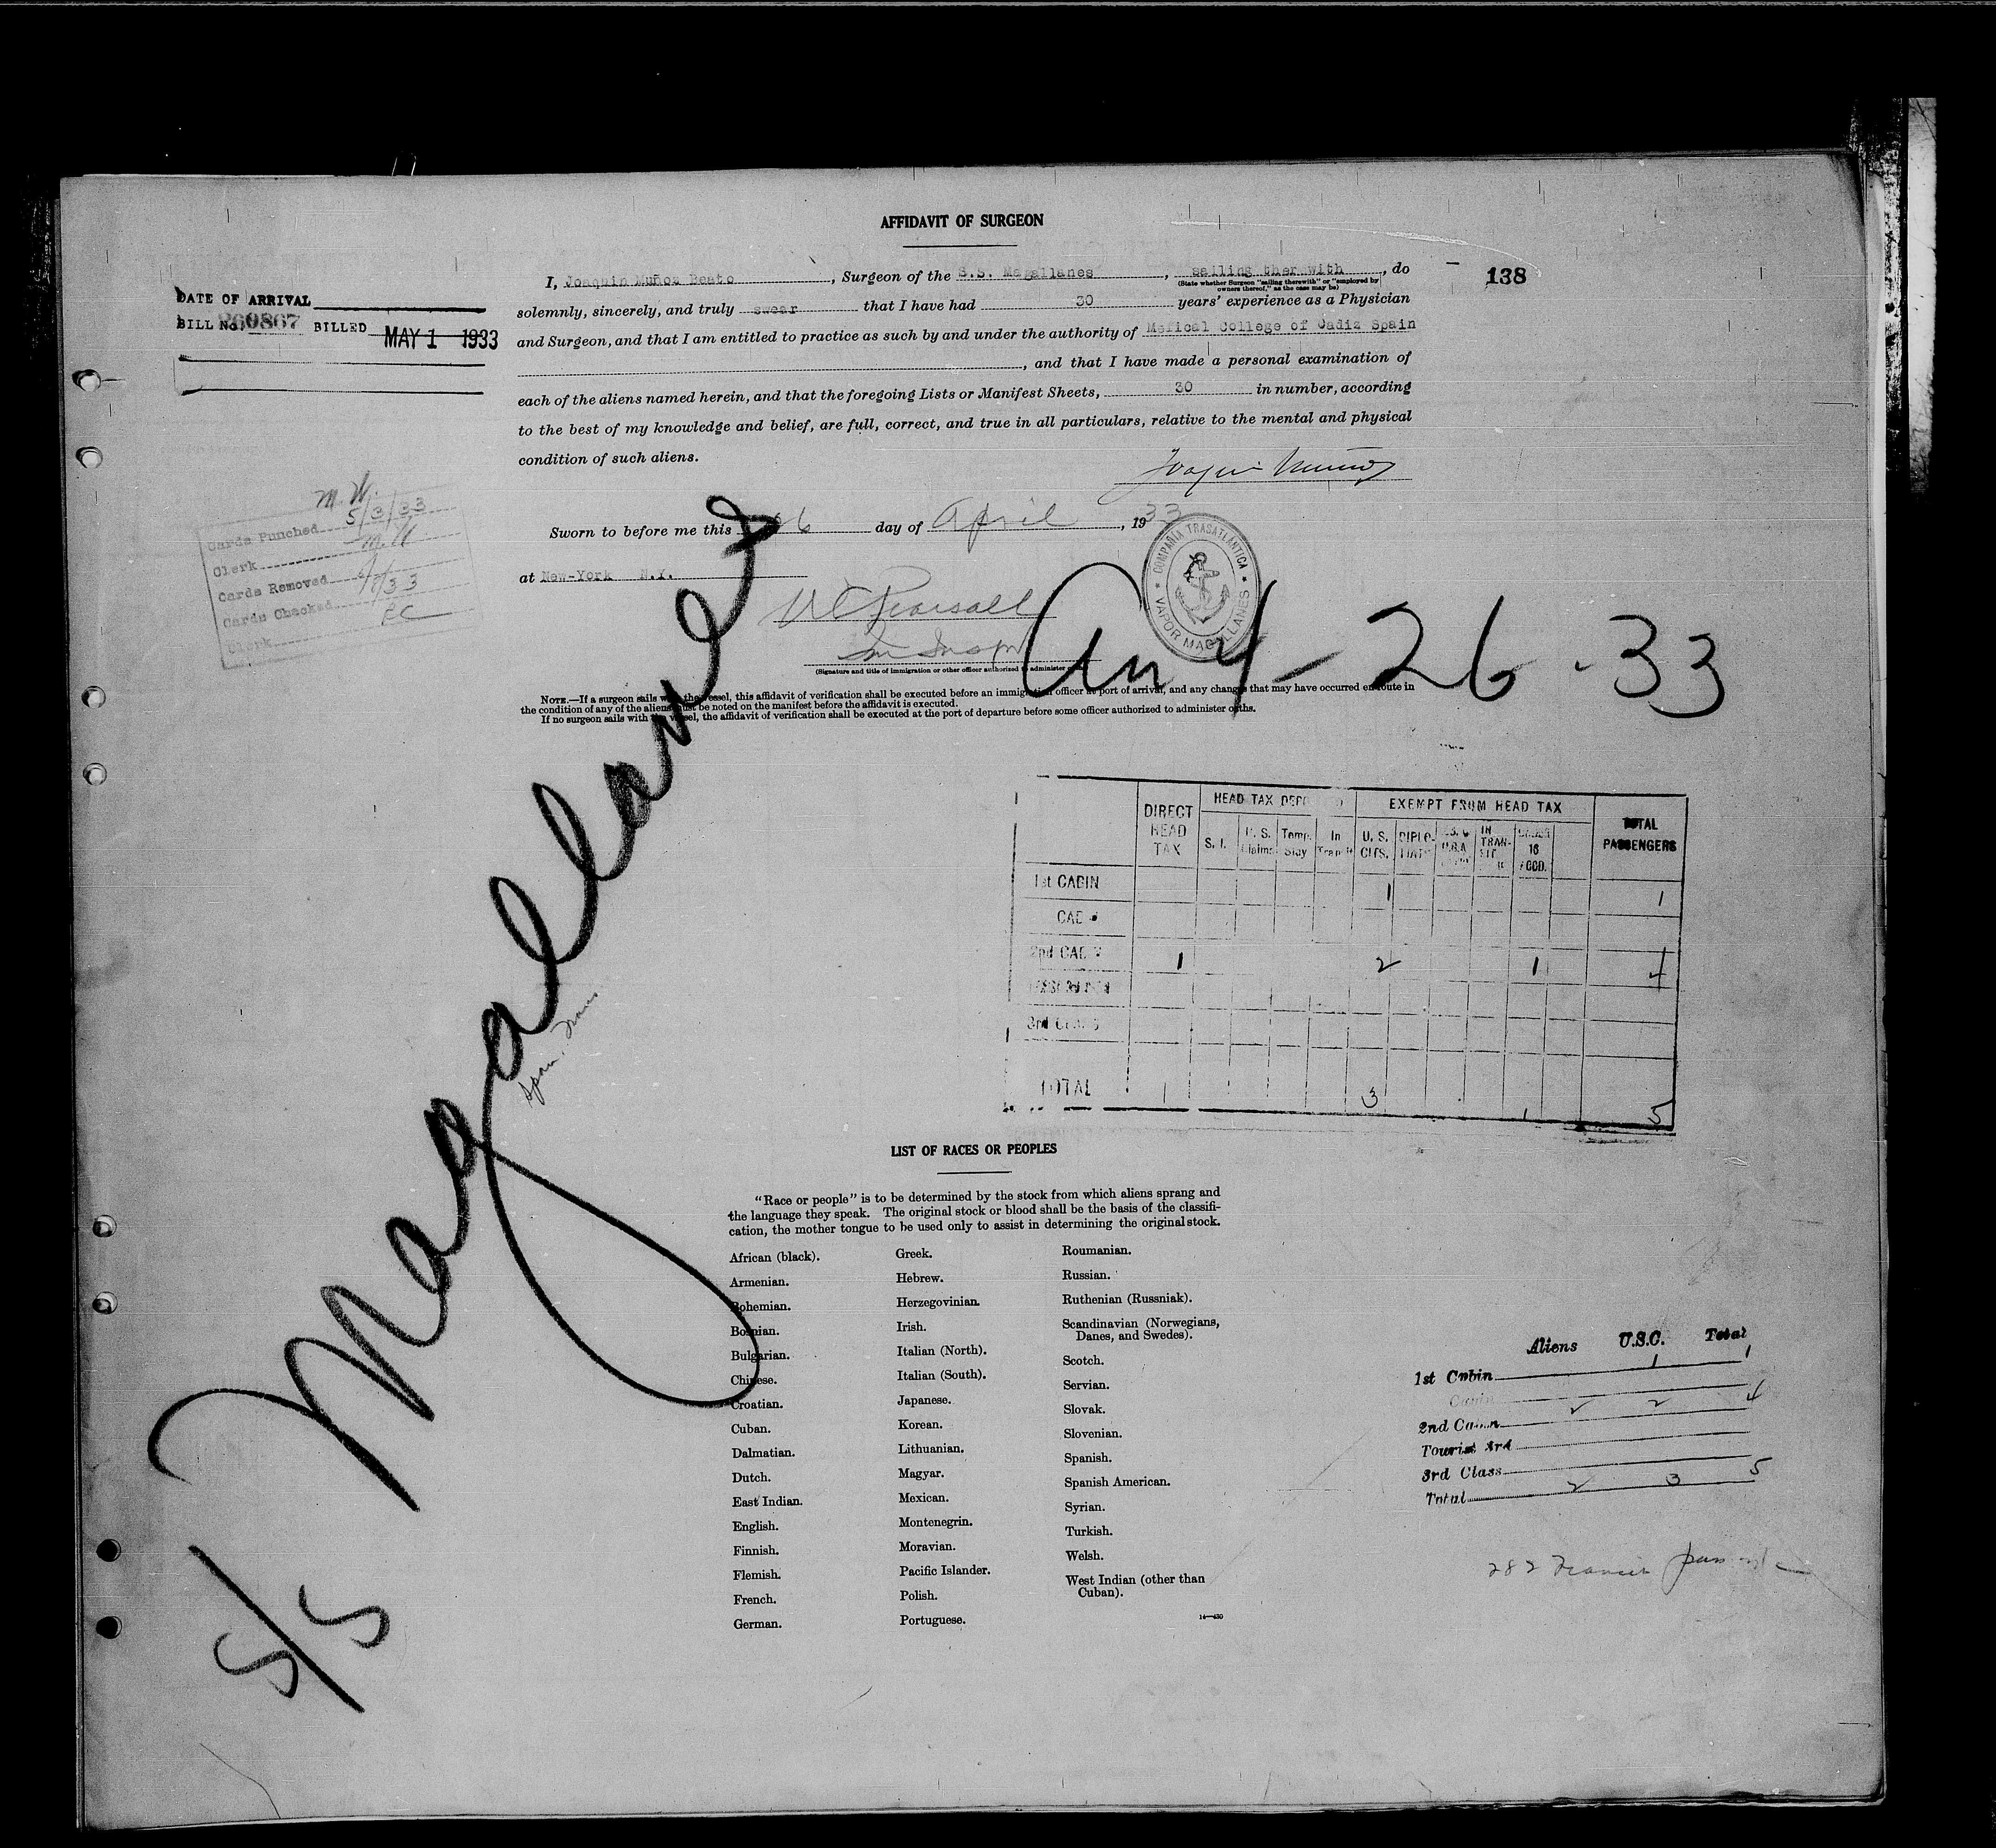 AFFIDAVIT OF SURGEON
138
I, Joaquin Muñoz Beato, Surgeon of the S.S. Magallanes, sailing ther with, do
(State whether Surgeon "sailing therewith" or "employed by
owners thereof," as the case may be)
solemnly, sincerely, and truly swear that I have had 30 years' experience as a Physician
and Surgeon, and that I am entitled to practice as such by and under the authority of Medical College of Cadiz Spain
, and that I have made a personal examination of
each of the aliens named herein, and that the foregoing Lists or Manifest Sheets, 30 in number, according
to the best of my knowledge and belief, are full, correct, and true in all particulars, relative to the mental and physical
condition of such aliens.
Joaquin Munoz
DATE OF ARRIVAL
BILL No. 260867 BILLED MAY 1 1933
M.W.
Cards Punched 5/3/33
Clerk
Cards Removed
Cards Checked
Clerk
Sworn to before me this 26 day of April, 1933
at New-York N.Y.
COMPAÑIA TRASATLANTICA
VAPOR MAGALLANES
(Signature and title of immigration or other officer authorized to administer
Arr 4-26-33
NOTE.—If a surgeon sails with the vessel, this affidavit of verification shall be executed before an immigration officer at port of arrival, and any changes that may have occurred en route in
the condition of any of the aliens must be noted on the manifest before the affidavit is executed.
If no surgeon sails with the vessel, the affidavit of verification shall be executed at the port of departure before some officer authorized to administer oaths.
S/S Magallanes
Span.
DIRECT HEAD TAX
HEAD TAX
EXEMPT FROM HEAD TAX
TOTAL PASSENGERS
S. I. U. S. Claims Temp. Stay In Transit U. S. CITS. DIPLO- MATS IN TRAN- SIT UNDER 16 ACCD.
1st CABIN 1 1
CAB
2nd CAB 1 2 1 4
3rd
TOTAL 1 3 1 5
LIST OF RACES OR PEOPLES
"Race or people" is to be determined by the stock from which aliens sprang and
the language they speak. The original stock or blood shall be the basis of the classifi-
cation, the mother tongue to be used only to assist in determining the original stock.
African (black).
Armenian.
Bohemian.
Bosnian.
Bulgarian.
Chinese.
Croatian.
Cuban.
Dalmatian.
Dutch.
East Indian.
English.
Finnish.
Flemish.
French.
German.
Greek.
Hebrew.
Herzegovinian.
Irish.
Italian (North).
Italian (South).
Japanese.
Korean.
Lithuanian.
Magyar.
Mexican.
Montenegrin.
Moravian.
Pacific Islander.
Polish.
Portuguese.
Roumanian.
Russian.
Ruthenian (Russniak).
Scandinavian (Norwegians,
Danes, and Swedes).
Scotch.
Servian.
Slovak.
Slovenian.
Spanish.
Spanish American.
Syrian.
Turkish.
Welsh.
West Indian (other than
Cuban).
14—430
Aliens U.S.C. Total
1st Cabin 1 1
Cabin
2nd Cabin 2 2 4
Tourist 3rd
3rd Class
Total 2 3 5
282